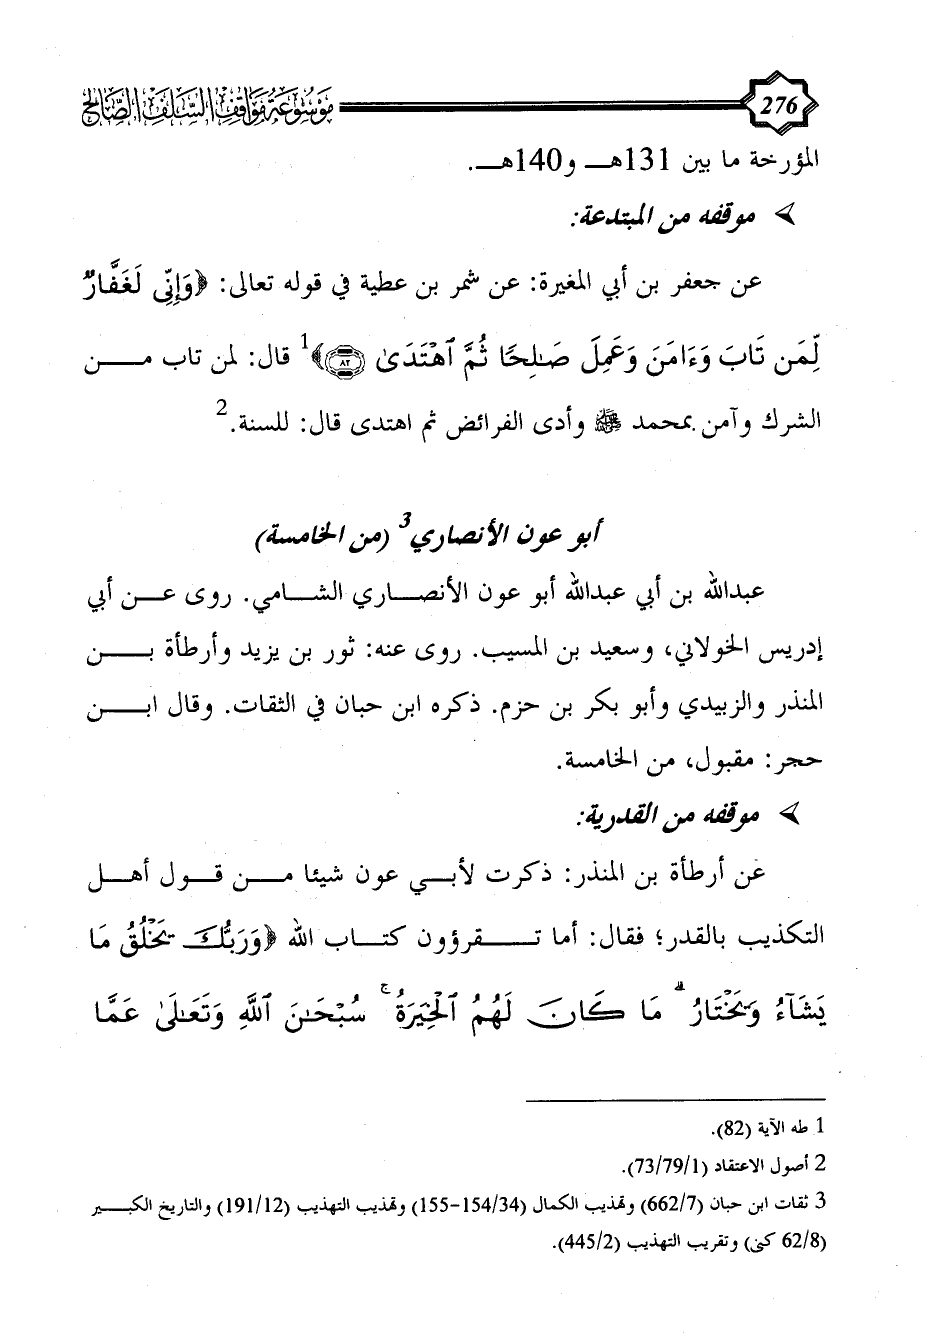 276 موسوعة مواقف السلف الصالح
المؤرخة ما بين 131هـ و140هـ.
موقفه من المبتدعة:
عن جعفر بن أبي المغيرة: عن شمر بن عطية في قوله تعالى: ﴿وَإِنِّي لَغَفَّارٌ
لِّمَن تَابَ وَءَامَنَ وَعَمِلَ صَٰلِحًا ثُمَّ ٱهْتَدَىٰ ٨٢﴾1 قال: لمن تاب مـــن
الشرك وآمن بمحمد ﷺ وأدى الفرائض ثم اهتدى قال: للسنة.2
أبو عون الأنصاري3 (من الخامسة)
عبدالله بن أبي عبدالله أبو عون الأنصـــاري الشـــامي. روى عـــن أبي
إدريس الخولاني، وسعيد بن المسيب. روى عنه: ثور بن يزيد وأرطأة بـــن
المنذر والزبيدي وأبو بكر بن حزم. ذكره ابن حبان في الثقات. وقال ابـــن
حجر: مقبول، من الخامسة.
موقفه من القدرية:
عن أرطأة بن المنذر: ذكرت لأبـــي عون شيئا مـــن قـــول أهـــل
التكذيب بالقدر؛ فقال: أما تـــقرؤون كتـــاب الله ﴿وَرَبُّكَ يَخْلُقُ مَا
يَشَآءُ وَيَخْتَارُ ۗ مَا كَانَ لَهُمُ ٱلْخِيَرَةُ ۚ سُبْحَٰنَ ٱللَّهِ وَتَعَٰلَىٰ عَمَّا
1 طه الآية (82).
2 أصول الاعتقاد (73/79/1).
3 ثقات ابن حبان (662/7) وتهذيب الكمال (154/34-155) وتهذيب التهذيب (191/12) والتاريخ الكبـــير
(62/8 كنى) وتقريب التهذيب (445/2).